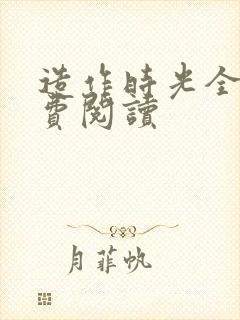 造作時光全
費閱讀
月菲帆